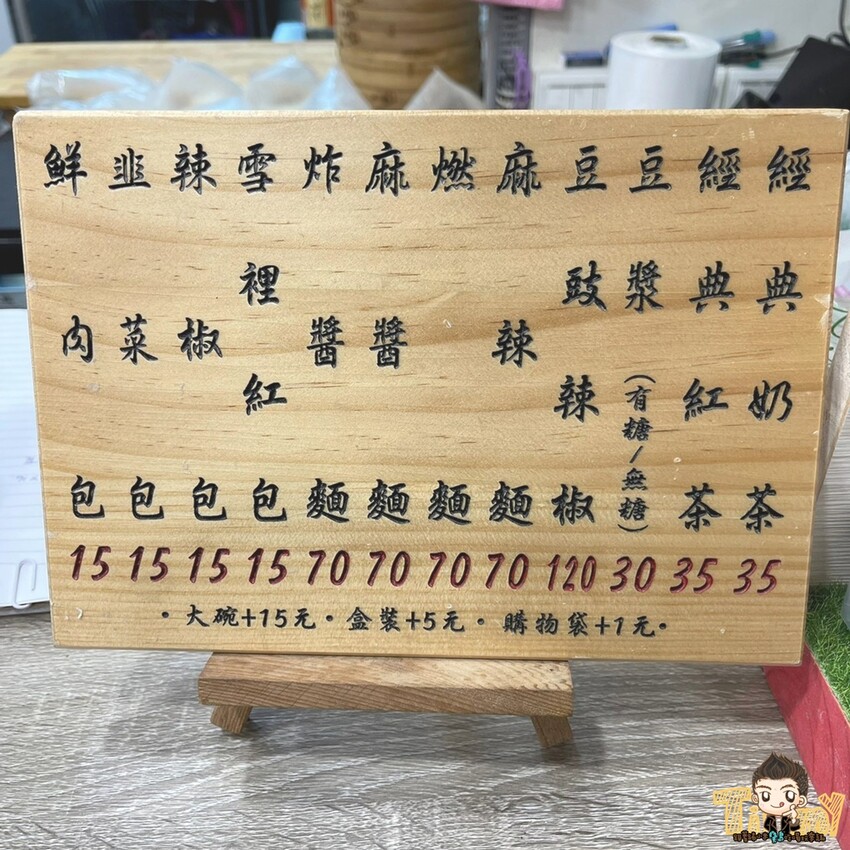 鮮肉包 15
韭菜包 15
辣椒包 15
雪裡紅包 15
炸醬麵 70
麻醬麵 70
燃麵 70
麻辣麵 70
豆豉辣椒 120
豆漿(有糖/無糖) 30
經典紅茶 35
經典奶茶 35
·大碗+15元·盒裝+5元·購物袋+1元·